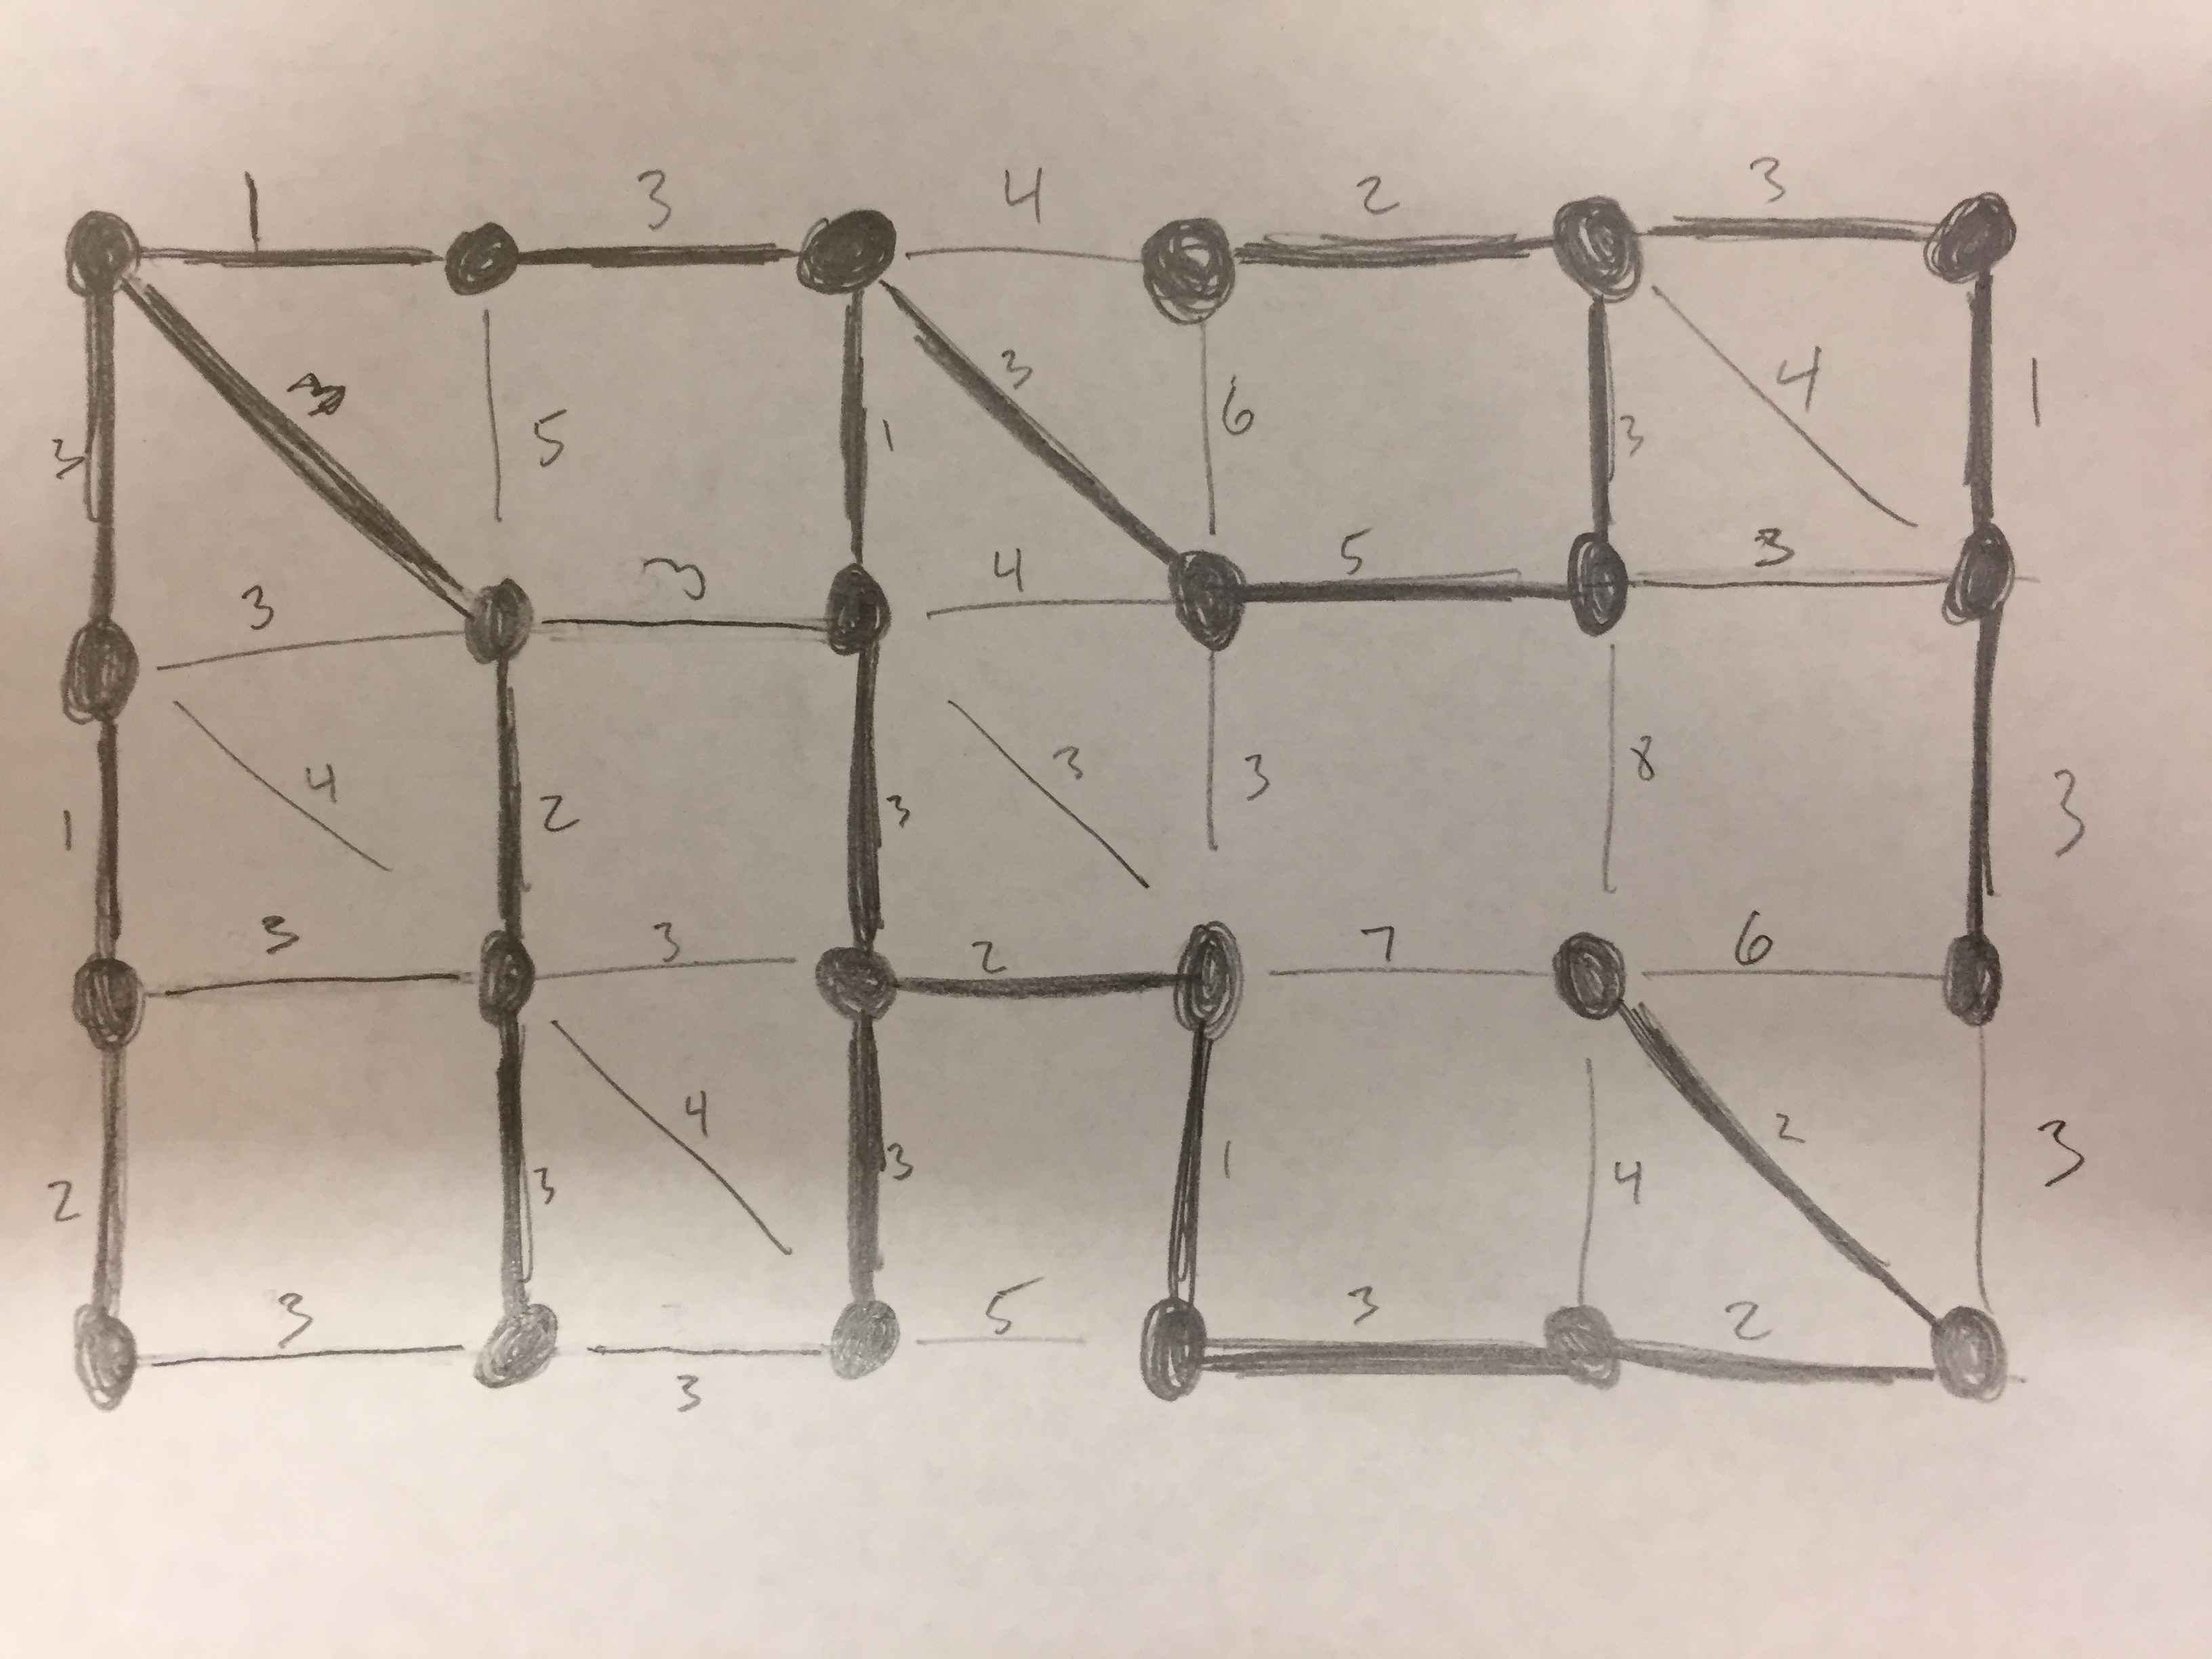 1 3 4 2 3
3 5 1 3 6 3 4 1
3 3 4 5 3
1 4 2 3 3 3 8 3
3 3 2 7 6
2 3 4 3 1 4 2 3
3 3 5 3 2